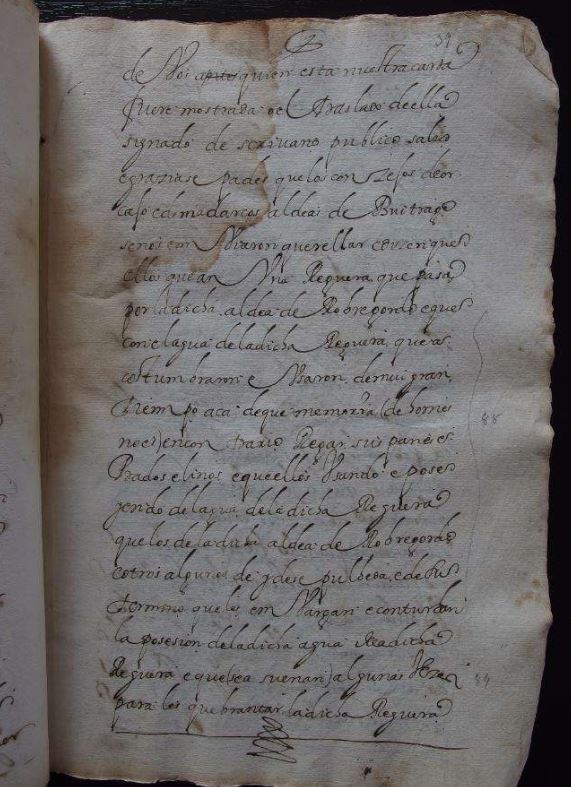 39
de Nos quien esta nuestra carta
fuere mostrada o el traslado de ella
signado de scrivano publico salud
e grazia sepades que los conzejos de or
caxo e de madarcos aldeas de Buitrago
se nos em viaron querellar e dizen que
ellos que an Una Reguera que pasa
por la dicha aldea de Robregordo e que
con el agua de la dicha Reguera que as
costumbraron e Usaron de mui gran
tiempo aca de que memoria de homes
no es en contrario Regar sus panes
Prados e linos e que ellos Usando e pose
yendo del agua de la dicha Reguera
que los de la dicha aldea de Robregordo
e otros algunos de y de sepulbeda e de su
termino que les em Vargan e conturban
la posesion de la dicha agua dicha
Reguera e que algunas Vezes
para les quebrantar la dicha Reguera
88
89